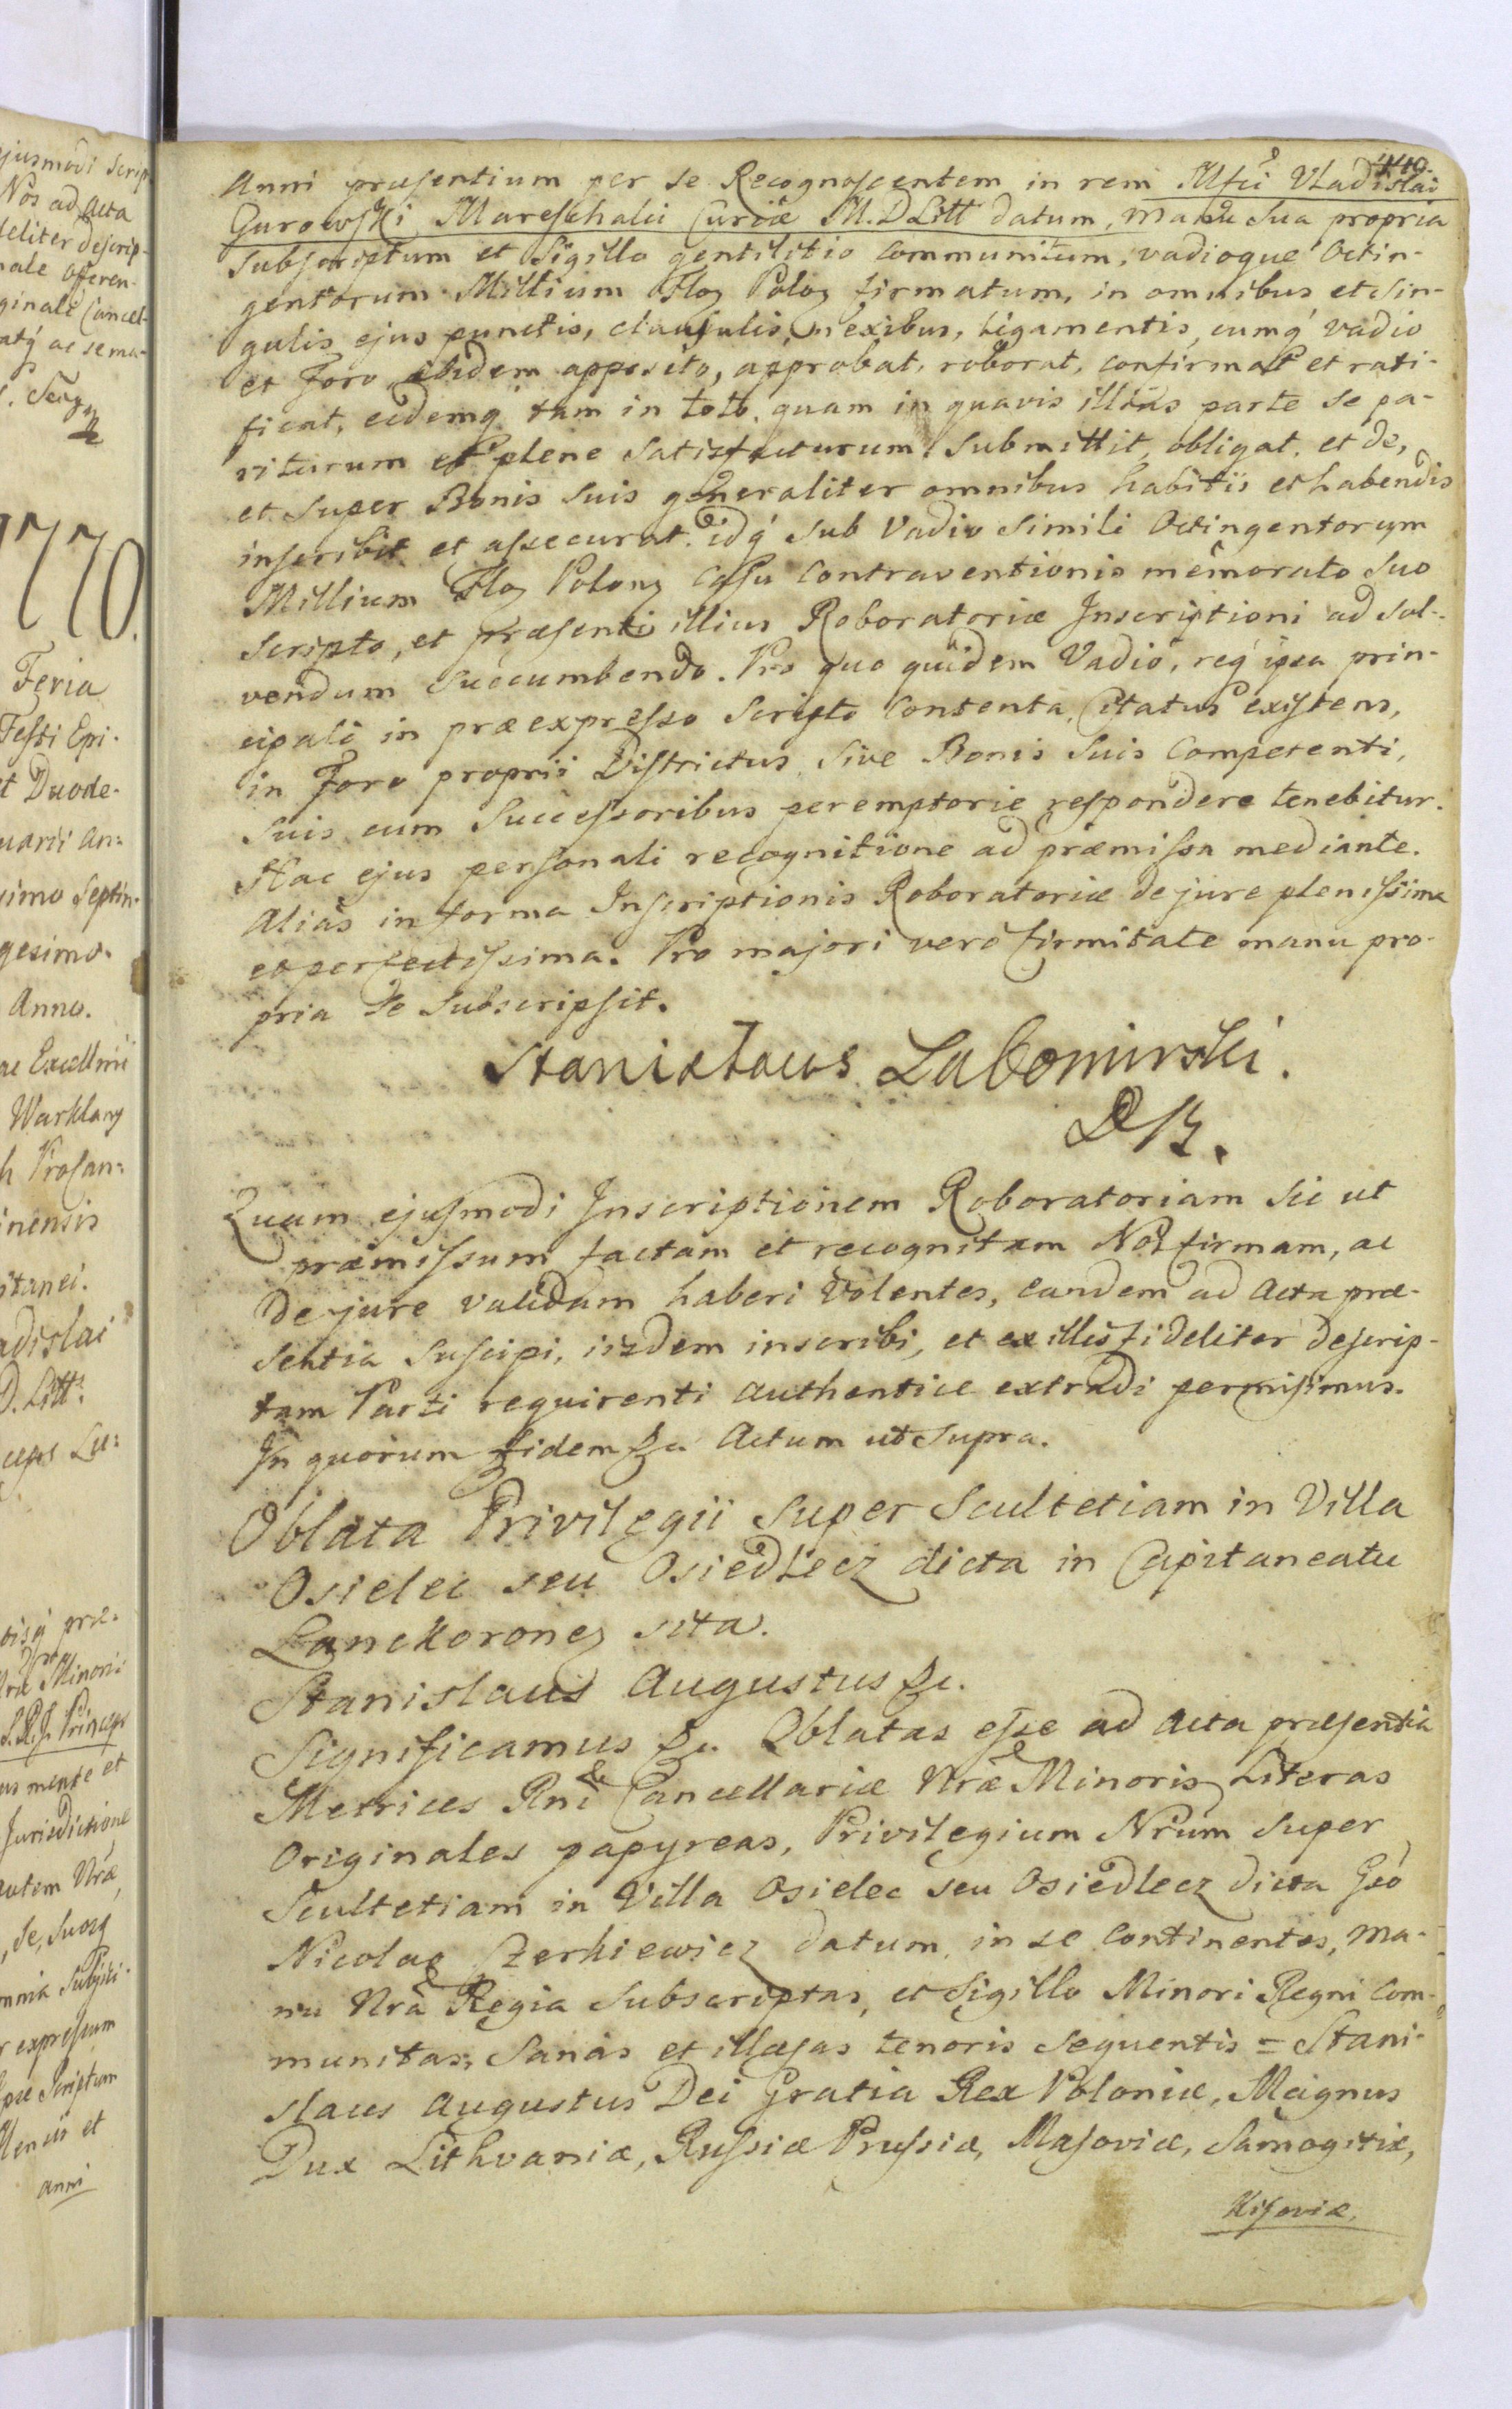 ejusmodi Scrip
Nos ad Acta
deliter descrip-
nale Offeren-
ginale Cancel-
1770.
Feria
Festi Epi-
et Duode-
uarii An=
simo Septin-
gesimo
Anno.
ac Excellmi
Warklany
h Prosan=
inensis
itanei.
adislai
D. Litt:
ceps Lu=
S.R.J. Princeps
us mente et
Jurisdictione
autem Nrae
, se, suosq
omnia Subjici-
r expressum
Scriptum
et
anni
440.
Anni praesentium per se Recognoscentem in rem Mfci Vladislai
Gurowski Mareschalii Curiae M. D Litt datum, Manu Sua propria
Subscriptum et Sigillo gentilitio communitum, vadioque Octin-
gentorum Millium Flor Polor firmatum, in omnibus et sin-
gulis ejus punctis, clausulis, nexibus, ligamentis, cumq vadio
et Foro ibidem apposito, approbat, roborat, confirmat et rati-
ficat, eidemq tam in toto quam in quavis illius parte se pa-
riturum et plene Satisfacturum Submittit, obligat, et de,
et super Bonis Suis generaliter omnibus habitis et habendis
inscribit et assecurat. idq sub Vadio Simili Octingentorum
Millium Flor Polon Casu Contraventionis memorato Suo
Scripto, et praesenti illius Roboratoriae Inscriptioni ad Sol-
vendum Succumbendo. Pro quo quidem Vadio, req ipsa prin-
cipali in praeexpresso Scripto Contenta, Citatus existens,
in Foro proprii Districtus, sive Bonis Suis Competenti,
Suis cum Successoribus peremptorie respondere tenebitur.
Hac ejus personali recognitione ad praemissa mediante.
Alias in forma Inscriptionis Roboratoriae de jure plenissima
et perfectissima. Pro majori vero firmitate manu pro-
pria Se Subscripsit.
Stanisłaus Lubomirski.
Quam ejusmodi Inscriptionem Roboratoriam Sic ut
praemissum factam et recognitam Nos firmam, ac
de jure validam haberi Volentes, eandem ad Acta prae-
sentia Suscipi, iisdem inscribi, et ex illis fideliter descrip-
tam Parti requirenti authentice extradi permisimus.
In quorum fidem &c Actum ut Supra.
Oblata Privilegii Super Scultetiam in Villa
Osielec seu Osiedlecz dicta in Capitaneatu
Lanckoronen sita.
Stanislaus Augustus &c.
Significamus &c. Oblatas esse ad Acta praesentia
Metrices Rni & Cancellariae Nrae Minoris Literas
Originales papyreas, Privilegium Nrum Super
Scultetiam in Villa Osielec seu Osiedlecz dicta Gso
Nicolao Szerkiewicz datum, in se Continentes, ma-
nu Nra Regia Subscriptas, et Sigillo Minori Regni Com-
munitas, Sanas et illaesas tenoris sequentis = Stani-
slaus Augustus Dei Gratia Rex Poloniae, Magnus
Dux Lithvaniae, Russiae Prussiae, Masoviae, Samogitiae,
Kijoviae,